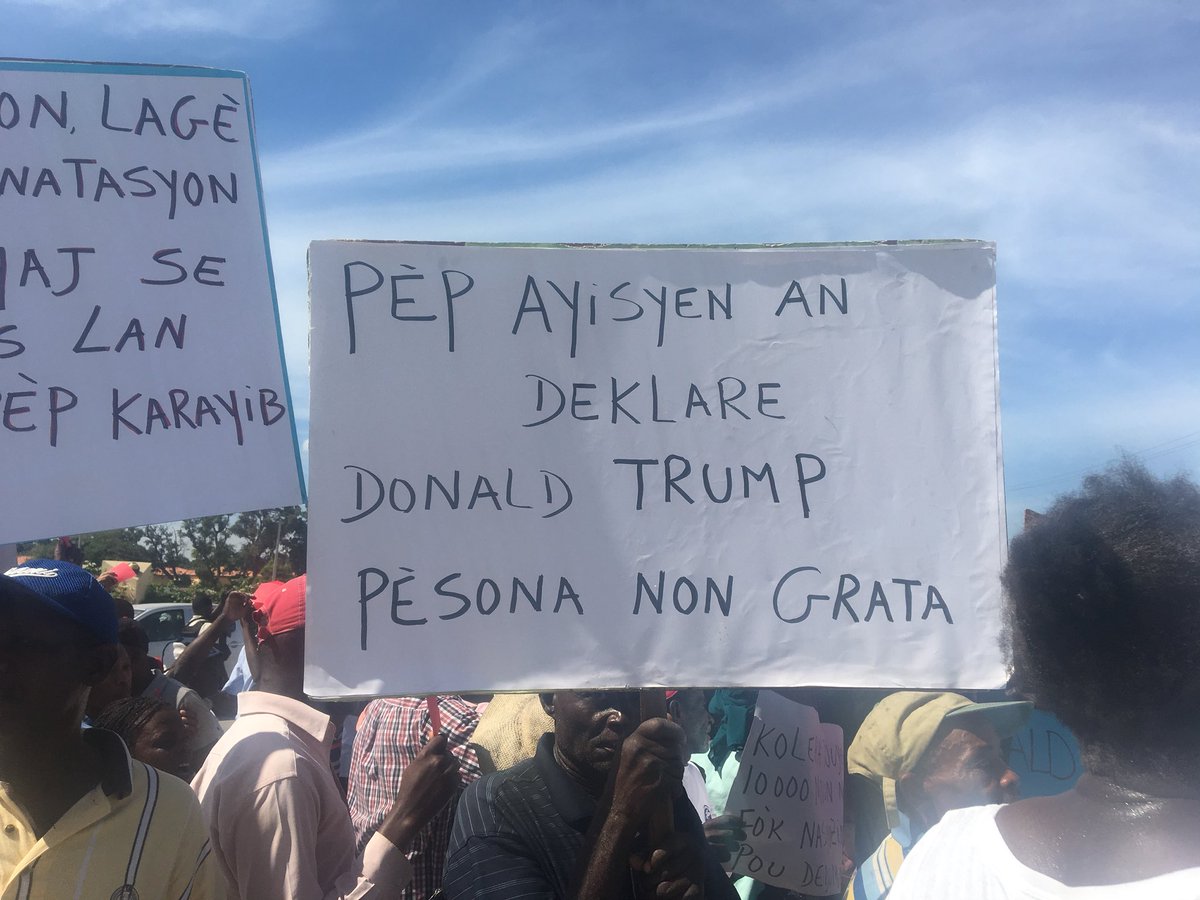 ON, LAGÈ
NATASYON
MAJ SE
S LAN
PÈP KARAYIB
PÈP AYISYEN AN
DEKLARE
DONALD TRUMP
PÈSONA NON GRATA
10000
FÒK
POU
ALD